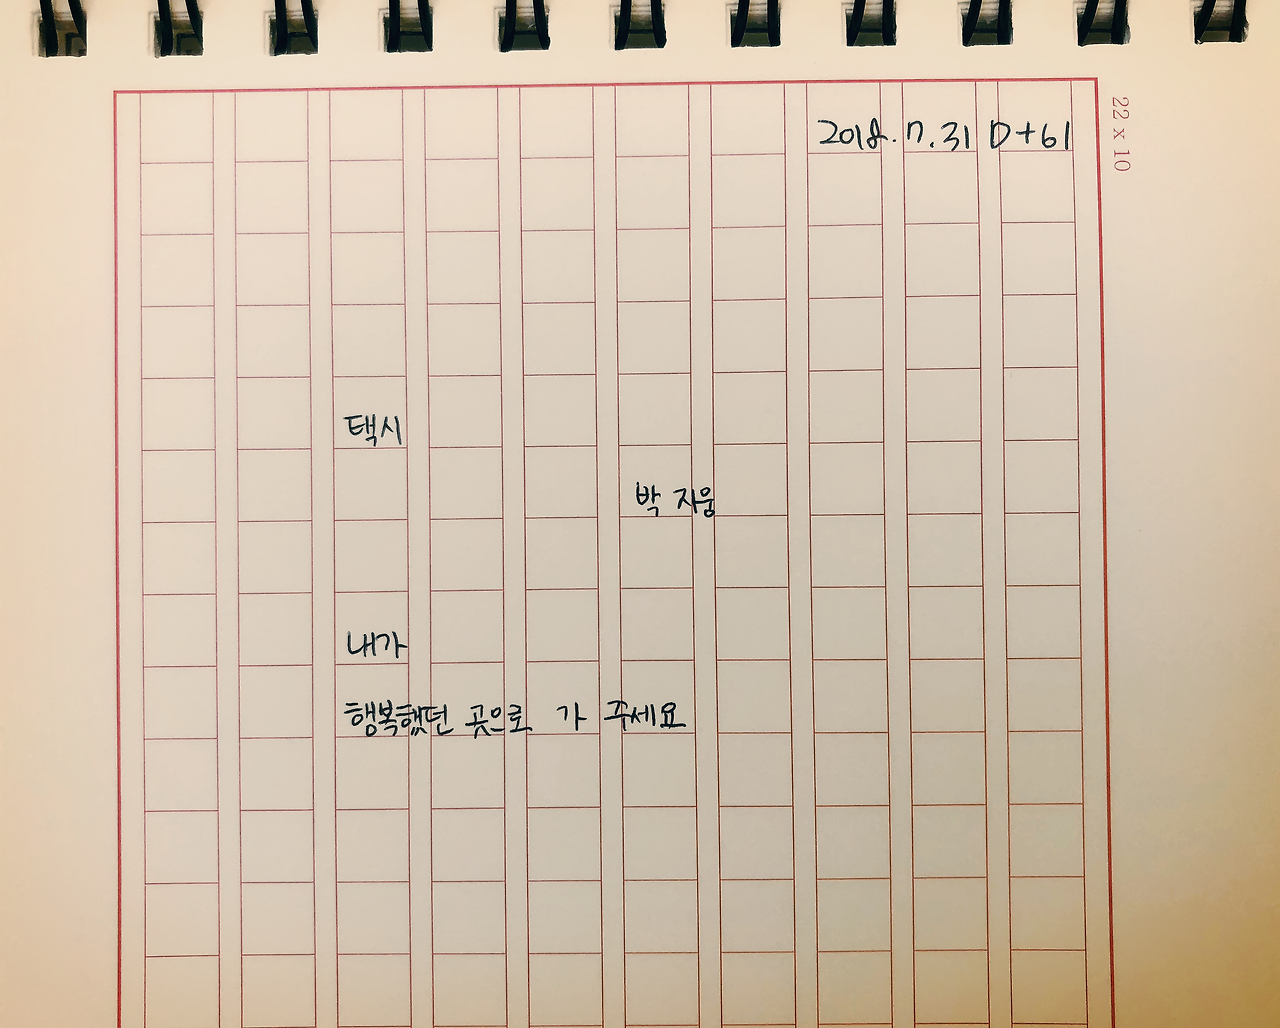 2018.7.31 D+61
22 x 10
택시
박 지웅
내가
행복했던 곳으로 가 주세요